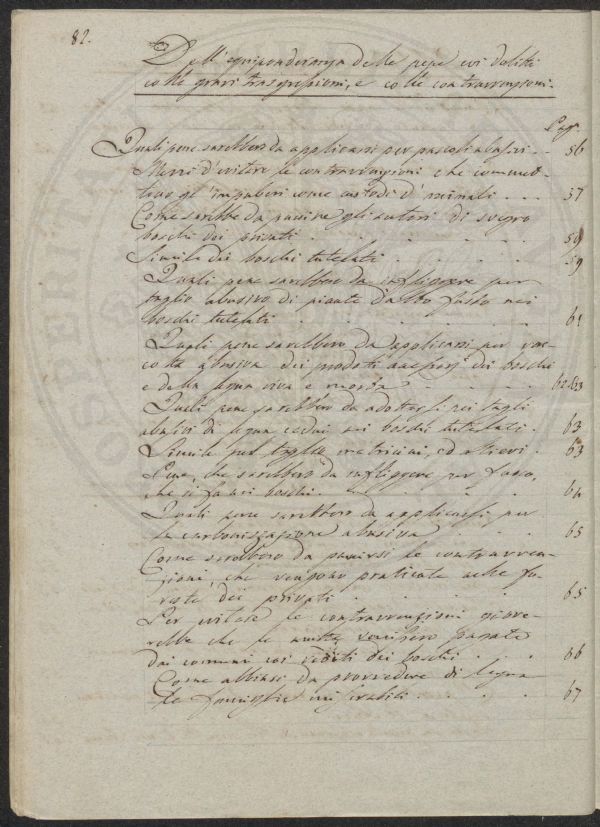 82.
Dell'equiponderanza delle pene coi delitti
colle gravi trasgressioni, e colle contravvenzioni.
Pag.
Quali pene sarebbero da applicarsi per pascoli abusivi . . 56
Mezzi d'evitare le contravvenzioni che commet-
tono gl'impuberi come custodi d'animali . . . 57
Come sarebbe da punire gli autori di svegro
boschi dei privati . . . . . . 59
Simile dei boschi tutelati . . . . . 59
Quali pene sarebbero da infliggere per
taglio abusivo di piante d'alto fusto nei
boschi tutelati . . . . . . 61
Quali pene sarebbero da applicarsi per rac-
colta abusiva dei prodotti accessorj dei boschi
e della legna viva e morta . . . . . 62.63
Quali pene sarebbero da adottarsi nei tagli
abusivi di legna cedui nei boschi tutelati . 63
Simile pel taglio matricini, ed allievi . 63
Pene, che sarebbero da infliggere per fuoco,
che si fa nei boschi . . . . . . 64
Quali pene sarebbero da applicarsi per
la carbonizzazione abusiva . . . . 65
Come sarebbero da punirsi le contravven-
zioni, che vengono praticate nelle fo-
reste dei privati . . . . . 65
Per evitare le contravvenzioni giove-
rebbe che le multe venissero pagate
dai comuni coi redditi dei boschi . . . 66
Come abbiasi da provvedere di legna
le famiglie miserabili . . . . 67